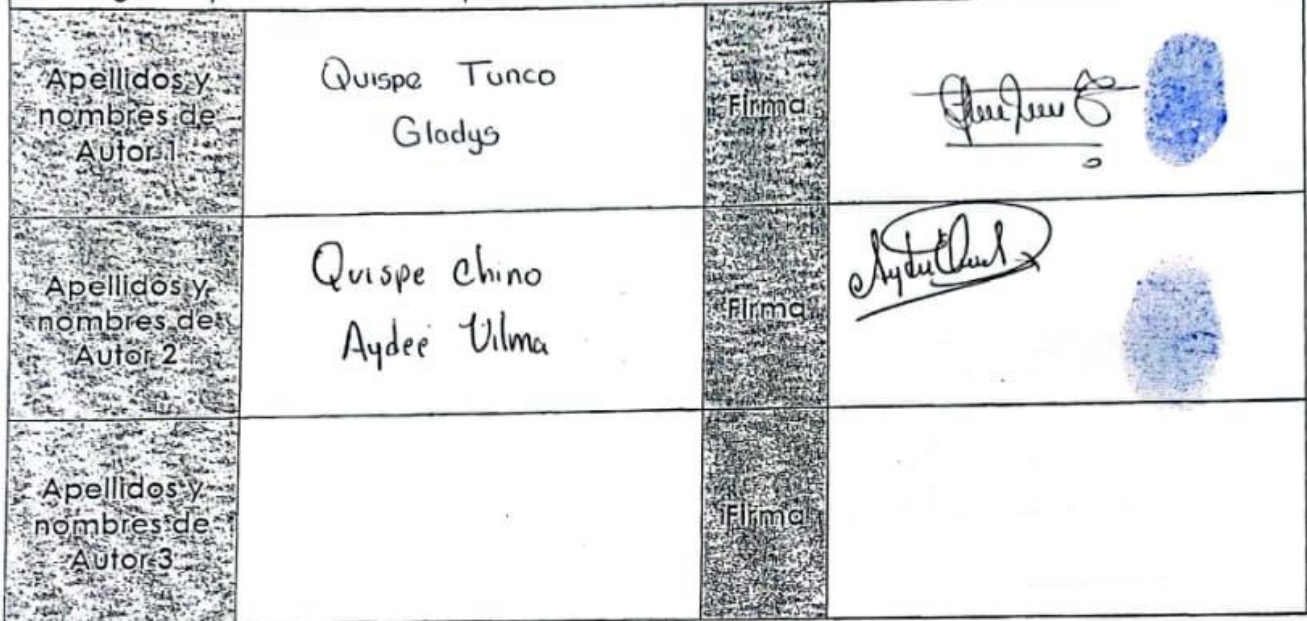 Apellidos y
nombres de
Autor 1
Quispe Tunco
Gladys
Firma
Apellidos y
nombres de
Autor 2
Quispe Chino
Aydeé Vilma
Firma
Apellidos y
nombres de
Autor 3
Firma